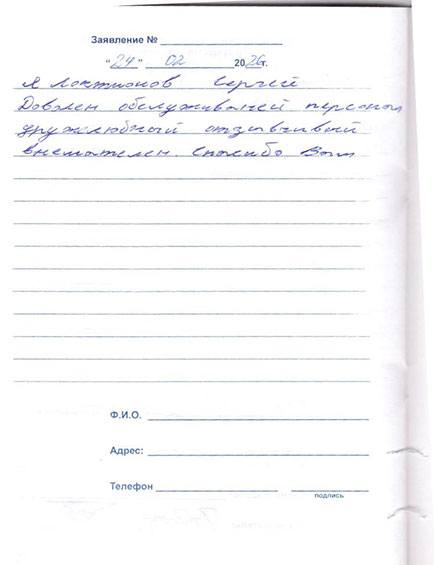 Заявление №
"24" 02 2026г.
Я Локтионов Сергей
Доволен обслуживаней персонал
дружелюбный отзывчивый
внемателен. Спасибо Вам
Ф.И.О.
Адрес:
Телефон
подпись